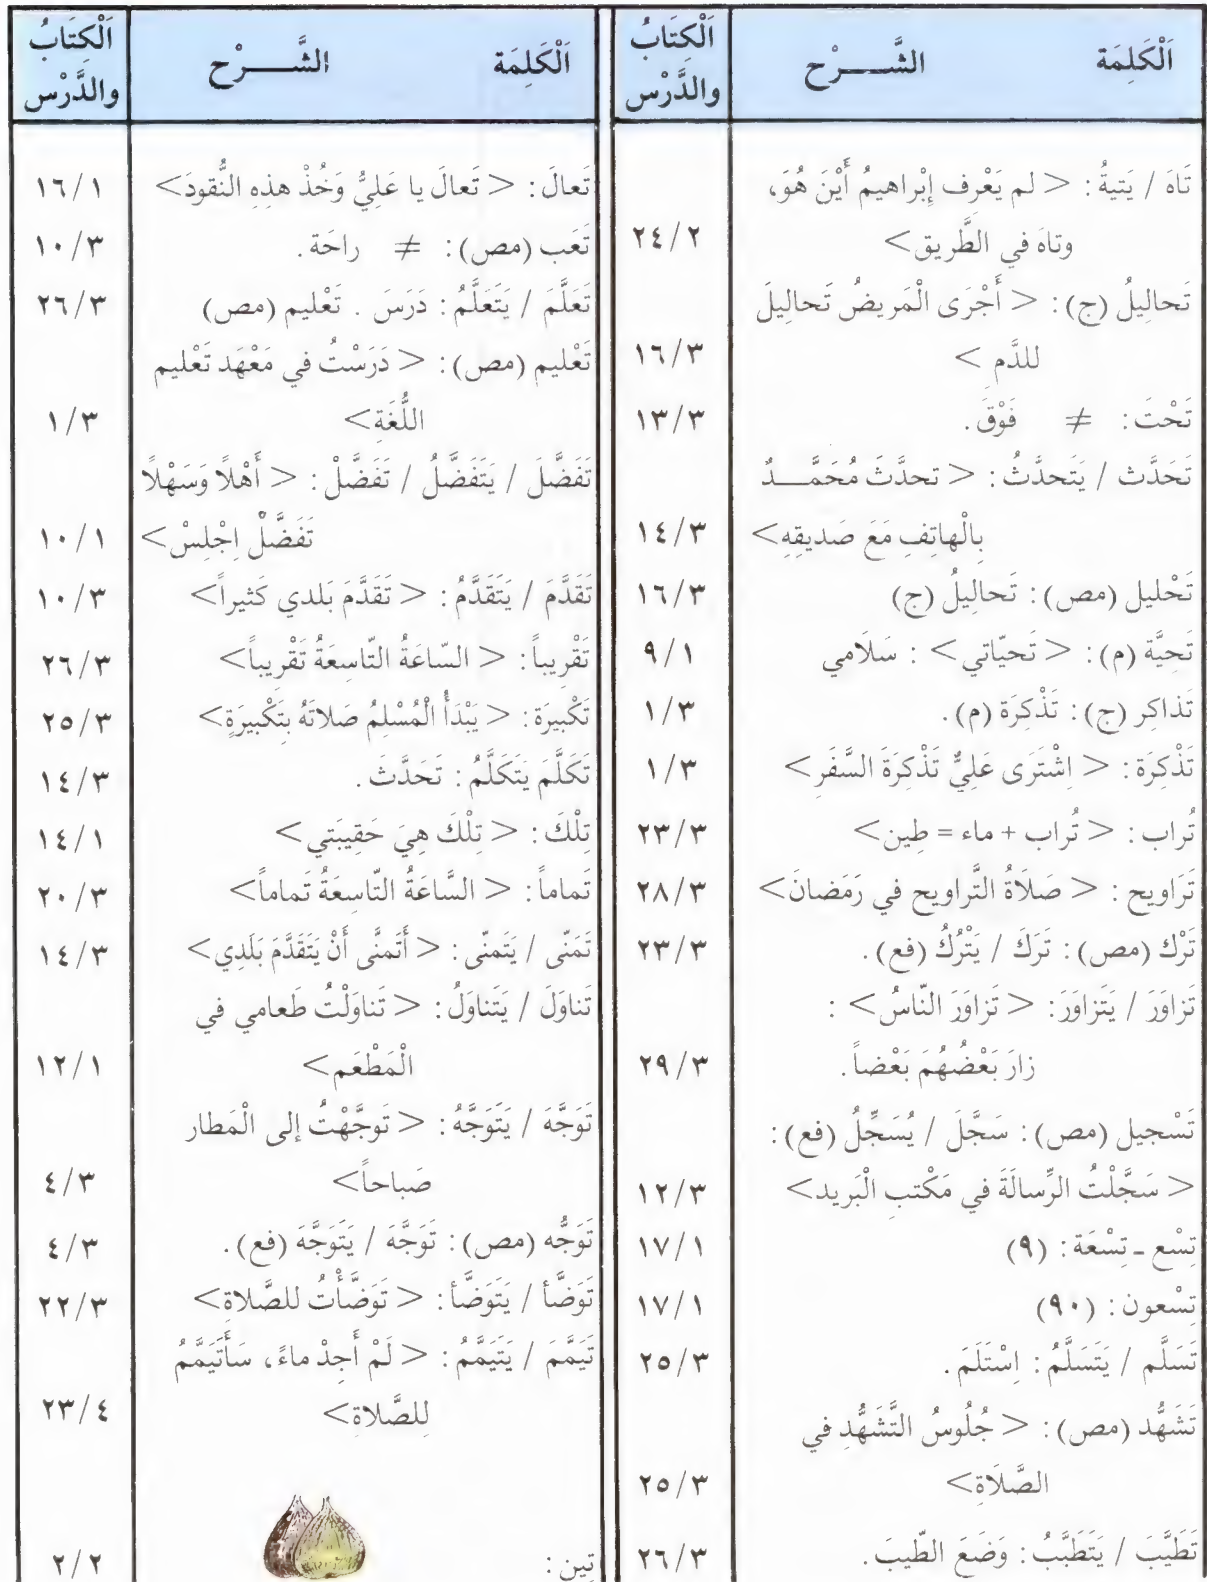 اَلْكَلِمَة الشَّـــرْح اَلْكِتَابُ والدَّرْس
تَاهَ / يَتيهُ : < لم يَعْرِف إِبْراهيمُ أَيْنَ هُوَ،
وتاهَ في الطَّريق> ٢٤/٢
تَحاليلُ (ج) : < أَجْرَى الْمَريضُ تَحاليلَ
للدَّم > ١٦/٣
تَحْتَ : ≠ فَوْقَ . ١٣/٣
تَحَدَّث / يَتَحدَّثُ : < تحدَّثَ مُحَمَّـــدٌ
بِالْهاتِفِ مَعَ صَديقِهِ> ١٤/٣
تَحْليل (مص) : تَحاليلُ (ج) ١٦/٣
تَحِيَّة (م) : < تَحيّاتي> : سَلاَمي ٩/١
تَذاكِر (ج) : تَذْكِرَة (م) . ١/٣
تَذْكِرَة : < اِشْتَرَى عَلِيٌّ تَذْكِرَةَ السَّفَر> ١/٣
تُراب : < تُراب + ماء = طِين> ٢٣/٣
تَرَاويح : < صَلاَةُ التَّراويح في رَمَضانَ> ٢٨/٣
تَرْك (مص) : تَرَكَ / يَتْرُكُ (فع) . ٢٣/٣
تَزاوَرَ / يَتَزاوَرَ : < تَزاوَرَ النّاسُ> :
زارَ بَعْضُهُمَ بَعْضاً . ٢٩/٣
تَسْجيل (مص) : سَجَّلَ / يُسَجِّلُ (فع) :
< سَجَّلْتُ الرِّسالَةَ في مَكْتبِ الْبَريد> ١٢/٣
تِسْع - تِسْعَة : (٩) ١٧/١
تِسْعون : (٩٠) ١٧/١
تَسَلَّم / يَتَسَلَّمُ : اِسْتَلَمَ . ٢٥/٣
تَشَهُّد (مص) : < جُلُوسُ التَّشَهُّدِ في
الصَّلاَةِ> ٢٥/٣
تَطَيَّبَ / يَتَطَبَّبُ : وَضَعَ الطّيبَ . ٢٦/٣
اَلْكَلِمَة الشَّـــرْح اَلْكِتَابُ والدَّرْس
تَعالَ : < تَعالَ يا عَلِيُّ وَخُذْ هذِهِ النُّقودَ> ١٦/١
تَعَب (مص) : ≠ راحَة . ١٠/٣
تَعَلَّمَ / يَتَعَلَّمُ : دَرَسَ . تَعْليم (مص) ٢٦/٣
تَعْليم (مص) : < دَرَسْتُ في مَعْهَد تَعْليم
اللُّغَةِ> ١/٣
تَفَضَّلَ / يَتَفَضَّلُ / تَفَضَّلْ : < أَهْلاً وَسَهْلاً
تَفَضَّلْ اِجْلِسْ> ١٠/١
تَقَدَّمَ / يَتَقَدَّمُ : < تَقَدَّمَ بَلدي كَثيراً> ١٠/٣
تَقْريباً : < السّاعَةُ التّاسِعَةُ تَقْريباً> ٢٦/٣
تَكْبيرَة : < يَبْدَأُ الْمُسْلِمُ صَلاتَهُ بِتَكْبيرَةٍ> ٢٥/٣
تَكَلَّمَ يَتَكَلَّمُ : تَحَدَّثَ . ١٤/٣
تِلْكَ : < تِلْكَ هِيَ حَقِيبَتي> ١٤/١
تَماماً : < السَّاعَةُ التّاسِعَةُ تَماماً> ٢٠/٣
تَمَنّى / يَتَمنّى : < أَتَمنَّى أَنْ يَتَقَدَّمَ بَلَدِي> ١٤/٣
تَناوَلَ / يَتَناوَلُ : < تَناوَلْتُ طَعامي في
الْمَطْعَم> ١٢/١
تَوَجَّهَ / يَتَوَجَّهُ : < تَوجَّهْتُ إلى الْمَطار
صَباحاً> ٤/٣
تَوَجُّه (مص) : تَوَجَّهَ / يَتَوَجَّهَ (فع) . ٤/٣
تَوَضَّأ / يَتَوَضَّأ : < تَوَضَّأْتُ للصَّلاةِ> ٢٢/٣
تَيَمَّمَ / يَتَيَمَّمُ : < لَمْ أَجِدْ ماءً، سَأَتَيَمَّمُ
لِلصَّلاةِ> ٢٣/٤
تِين : ٢/٢